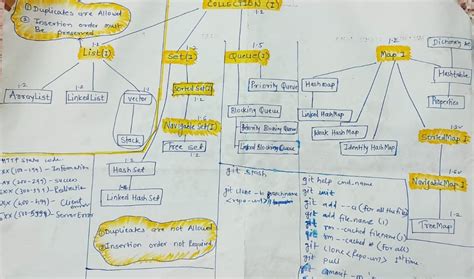 COLLECTION (I)
① Duplicates are Allowed
② Insertion order must
Be preserved
1.2
List(I)
ArrayList
LinkedList
vector
Stack
1.2
Set(I)
1.2
Sorted Set(I)
1.6
Navigable Set(I)
Tree set
Hash Set
Linked Hash Set
1.5
Queue(I)
Priority Queue
Blocking Queue
Priority Blocking Queue
Linked Blocking Queue
1.2
Map I
Hashmap
Linked HashMap
Weak HashMap
Identity HashMap
Dictionary
Hashtable
Properties
SortedMap(I)
NavigableMap(I)
TreeMap
HTTP Status code
(100-199) - Information
(200-299) - success
(300-399) - Redirection
(400-499) - Client
error
Server Error
① Duplicates are not Allowed
② Insertion order not Required
git stash
git clone -b
git help cmd.name
git init
git add
git add file.name
git rm --cached filename
git rm --cached
git clone <Repo-url> 1st time
git pull
git commit -m